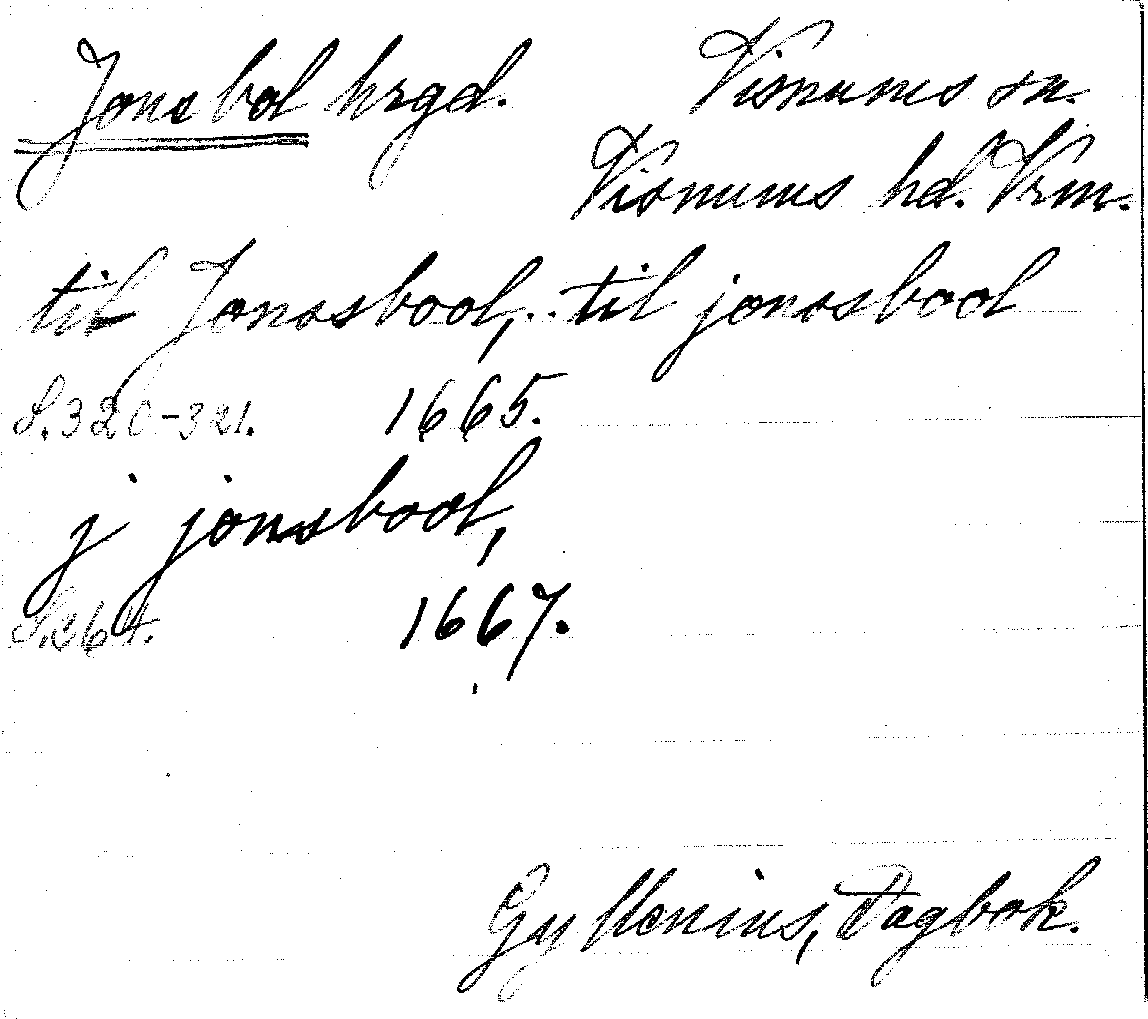 Jonsbol hrgd. Visnums sn.
Visnums hd. Vrm.
til Jonssbool,.. til jonssbool
S. 320-321. 1665.
j jonsbool,
S. 264. 1667.
Gyllenius, Dagbok.